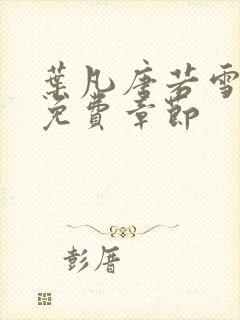 葉凡唐若雪
免費章節
彭厝